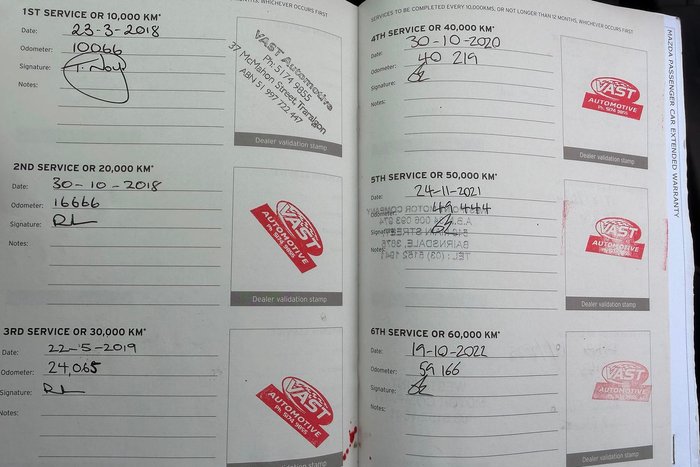 MONTHS, WHICHEVER OCCURS FIRST
1ST SERVICE OR 10,000 KM*
Date: 23-3-2018
Odometer: 10066
Signature:
Notes:
VAST Automotive
Ph: 5174 9855
37 McMahon Street, Traralgon
ABN 51 997 722 447
Dealer validation stamp
2ND SERVICE OR 20,000 KM*
Date: 30-10-2018
Odometer: 16666
Signature:
Notes:
VAST
AUTOMOTIVE
Ph. 5174 9855
Dealer validation stamp
3RD SERVICE OR 30,000 KM*
Date: 22-5-2019
Odometer: 24,065
Signature:
Notes:
VAST
AUTOMOTIVE
Ph. 5174 9855
Dealer validation stamp
SERVICES TO BE COMPLETED EVERY 10,000KMS, OR NOT LONGER THAN 12 MONTHS, WHICHEVER OCCURS FIRST
4TH SERVICE OR 40,000 KM*
Date: 30-10-2020
Odometer: 40 219
Signature:
Notes:
VAST
AUTOMOTIVE
Ph. 5174 9855
Dealer validation stamp
5TH SERVICE OR 50,000 KM*
Date: 24-11-2021
Odometer: 49 444
Signature:
Notes:
MOTOR COMPANY
MAIN STREET
BAIRNSDALE, 3875
TEL: (03) 5152 1941
VAST
AUTOMOTIVE
Dealer validation stamp
6TH SERVICE OR 60,000 KM*
Date: 19-10-2022
Odometer: 59 166
Signature:
Notes:
VAST
AUTOMOTIVE
Dealer validation stamp
MAZDA PASSENGER CAR EXTENDED WARRANTY